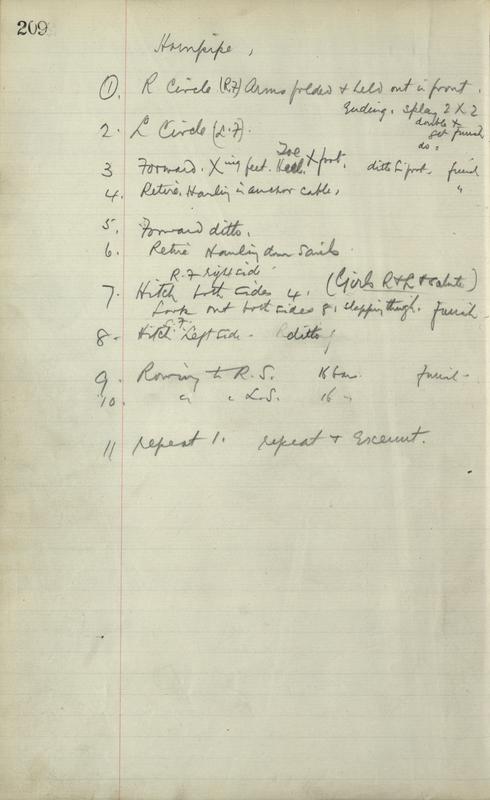 209
Hornpipe,
1. R Circle (R.F) Arms folded & held out in front.
Ending. Splay 2 X 2
double &
2. L Circle (L.F). get finish
do =
Toe X foot.
3 Forward. Xing feet. Heel. ditto L foot. finish
4. Retire. Hauling in anchor cable, "
5. Forward ditto.
6. Retire Hauling down Sails
R.F right side
7. Hitch both sides 4. (Girls R & L & salute)
Look out both sides 8, slapping thigh. finish
L.F.
8. Hitch Left side - ditto
9. Rowing to R.S. 16 bars. finish -
10. " " L.S. 16 "
11 repeat 1. repeat & Exeunt.